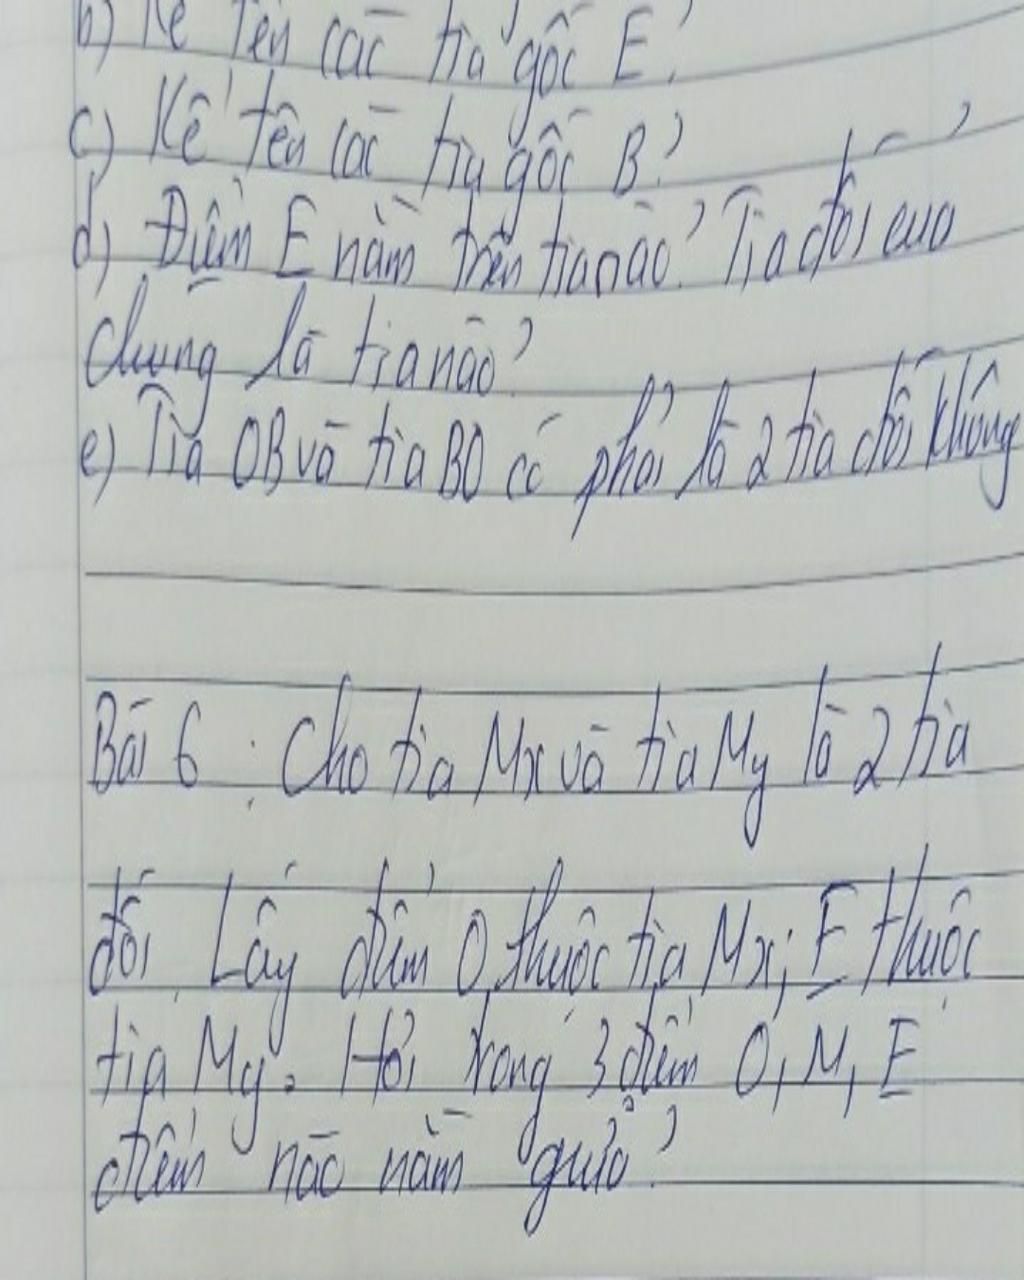 b) Kể tên các tia gốc E?
c) Kể tên các tia gốc B?
d) Điểm E nằm trên tia nào? Tia đối của
chúng là tia nào?
e) Tia OB và tia BO có phải là 2 tia đối không
Bài 6: Cho tia Mx và tia My là 2 tia
đối. Lấy điểm O thuộc tia Mx; E thuộc
tia My. Hỏi trong 3 điểm O, M, E
điểm nào nằm giữa?